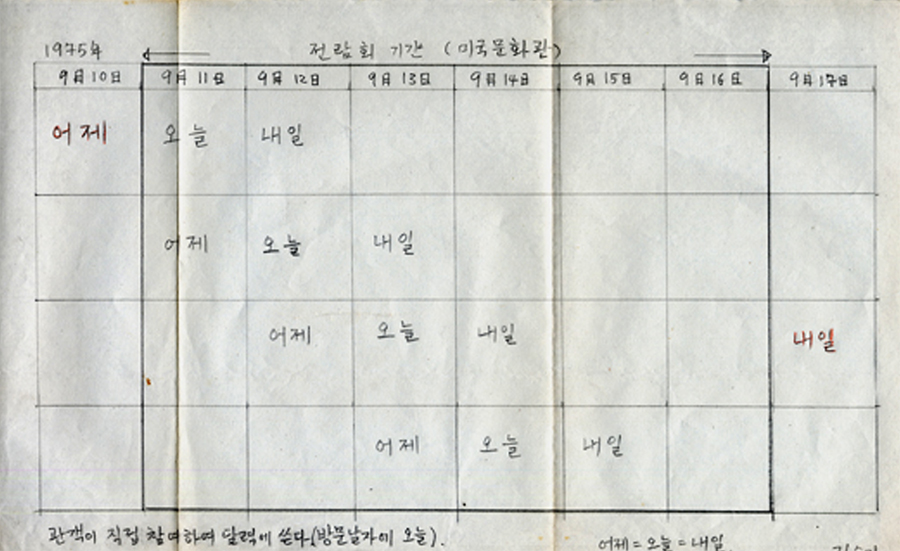 1975年 전람회 기간 (미국문화관)
9月10日 9月11日 9月12日 9月13日 9月14日 9月15日 9月16日 9月17日
어제 오늘 내일
어제 오늘 내일
어제 오늘 내일 내일
어제 오늘 내일
관객이 직접 참여하여 달력에 쓴다.(방문날자에 오늘).
어제=오늘=내일